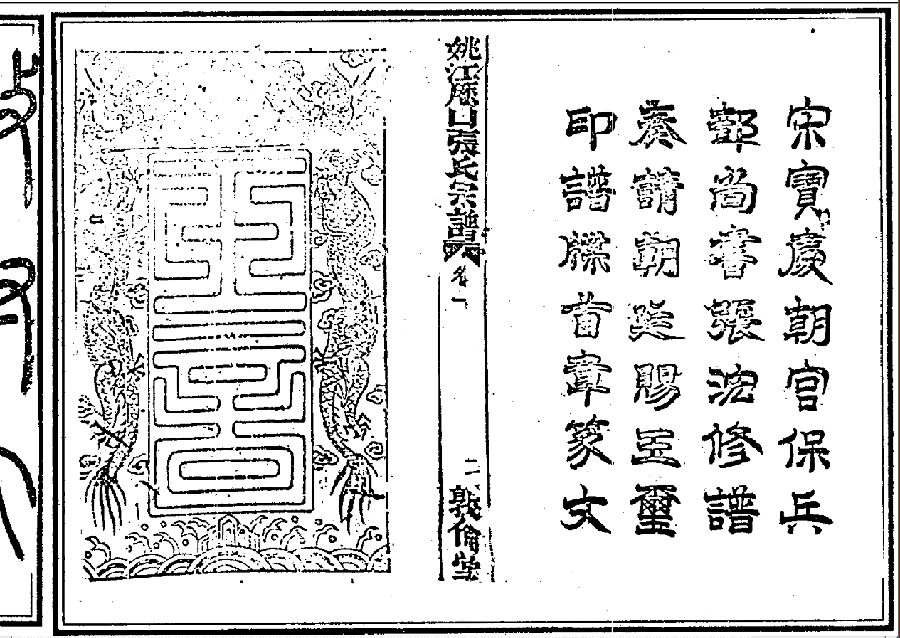 宋寶慶朝宮保兵
部尚書張修譜
奏請朝廷賜玉璽
印譜牒首章篆文
姚江歷山張氏宗譜 卷一 二 敦倫堂